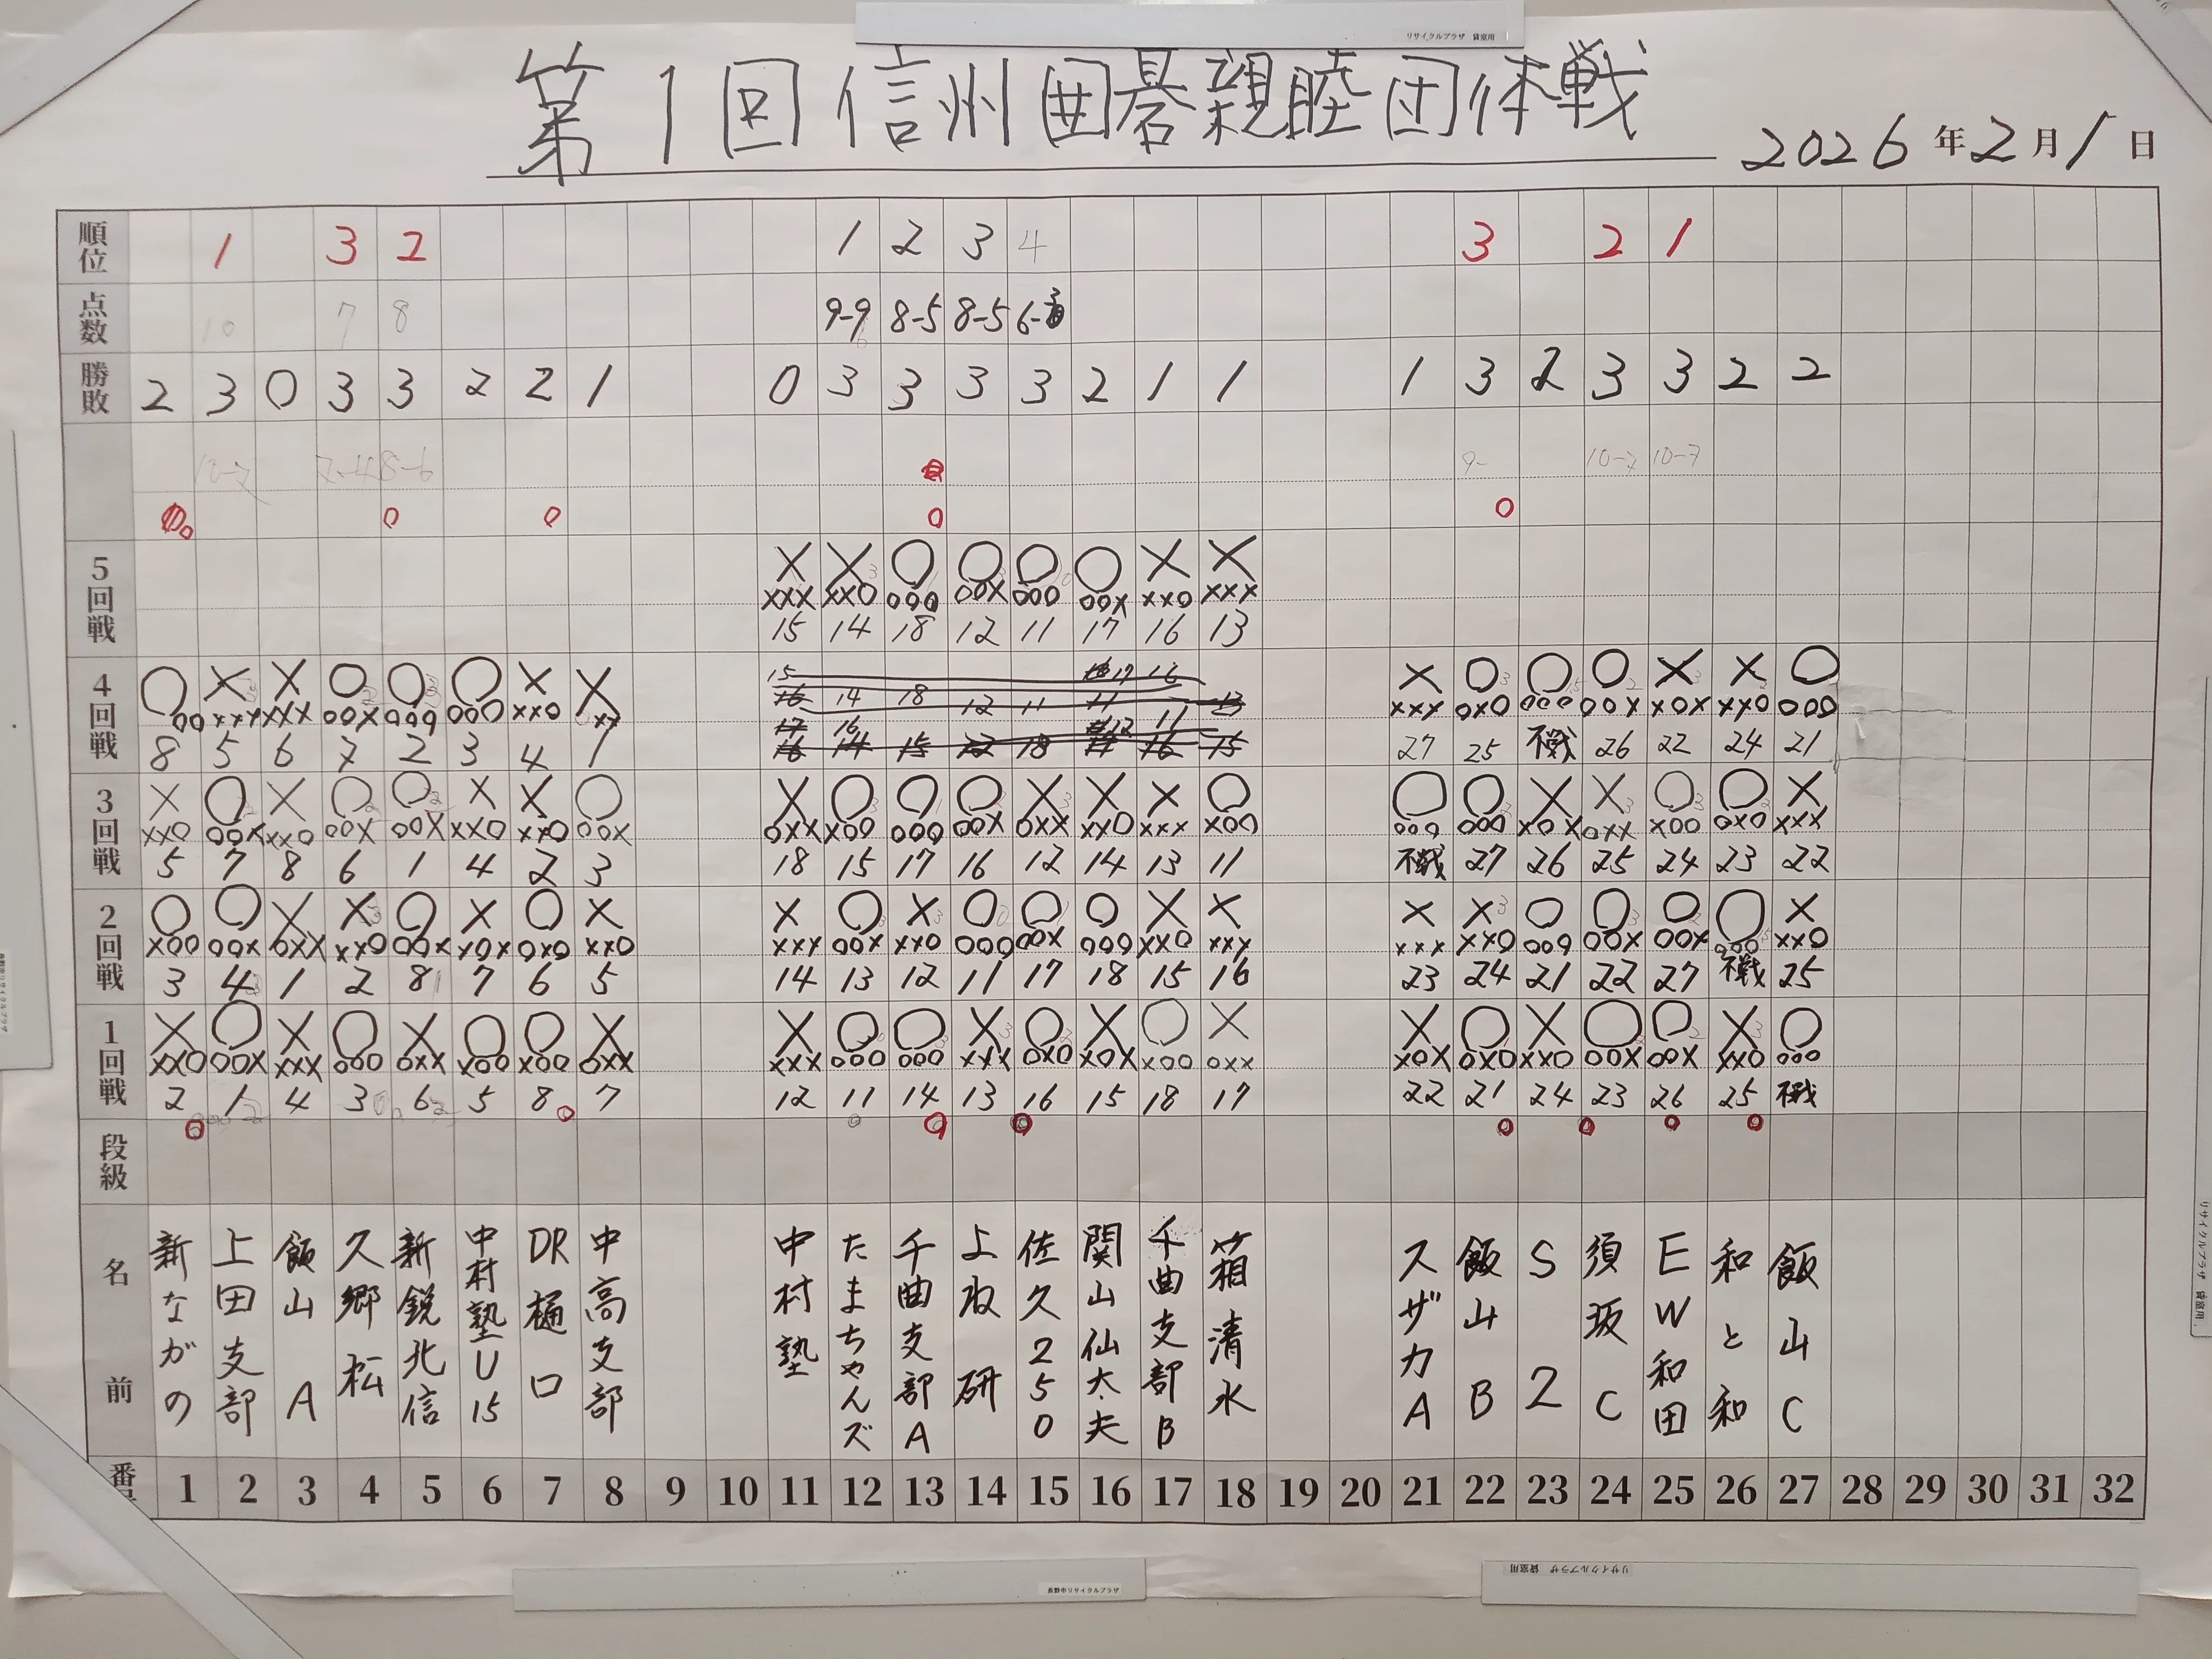 第1回信州囲碁親睦団体戦
2026年2月1日
順位 1 3 2 1 2 3 4 3 2 1
点数 10 7 8 9-9 8-5 8-5 6-
勝敗 2 3 0 3 3 2 2 1 0 3 3 3 3 2 1 1 1 3 2 3 3 2 2
10-7 10-7
5回戦
× × ○ ○ ○ ○ × ×
××× ××○ ○○○ ○○× ○○○ ○○× ××○ ×××
15 14 18 12 11 17 16 13
4回戦
○ × × ○ ○ ○ × × × ○ ○ ○ × × ○
○○ ××× ××× ○○× ○○○ ○○○ ××○ ×× ××× ○×○ ○○○ ○○× ×○× ××○ ○○○
8 5 6 7 2 3 4 1 27 25 不戦 26 22 24 21
3回戦
× ○ × ○ ○ × × ○ × ○ ○ ○ × × × ○ ○ ○ × × ○ ○ ×
××○ ○○× ××○ ○○× ○○× ××○ ××○ ○○× ○×× ×○○ ○○○ ○○× ○×× ××○ ××× ×○○ ○○○ ○○○ ×○× ○×× ×○○ ○×○ ×××
5 7 8 6 1 4 2 3 18 15 17 16 12 14 13 11 不戦 27 26 25 24 23 22
2回戦
○ ○ × × ○ × ○ × × ○ × ○ ○ ○ × × × × ○ ○ ○ ○ ×
×○○ ○○× ○×× ××○ ○○× ×○× ○×○ ××○ ××× ○○× ××○ ○○○ ○○× ○○○ ××○ ××× ××× ××○ ○○○ ○○× ○○× ○○○ ××○
3 4 1 2 8 7 6 5 14 13 12 11 17 18 15 16 23 24 21 22 27 不戦 25
1回戦
× ○ × ○ × ○ ○ × × ○ ○ × ○ × ○ × × ○ × ○ ○ × ○
××○ ○○× ××× ○○○ ○×× ×○○ ×○○ ○×× ××× ○○○ ○○○ ××× ○×○ ×○× ×○○ ○×× ×○× ○×○ ××○ ○○× ○○× ××○ ○○○
2 1 4 3 6 5 8 7 12 11 14 13 16 15 18 17 22 21 24 23 26 25 不戦
段級
名前
新ながの
上田支部
飯山A
久郷松
新鋭北信
中村塾U15
DR樋口
中高支部
中村塾
たまちゃんズ
千曲支部A
よね研
佐久250
関山仙太夫
千曲支部B
箱清水
スザカA
飯山B
S2
須坂C
EW和田
和と和
飯山C
番 1 2 3 4 5 6 7 8 9 10 11 12 13 14 15 16 17 18 19 20 21 22 23 24 25 26 27 28 29 30 31 32
リサイクルプラザ 貸室用
リサイクルプラザ 貸室用
リサイクルプラザ 貸室用